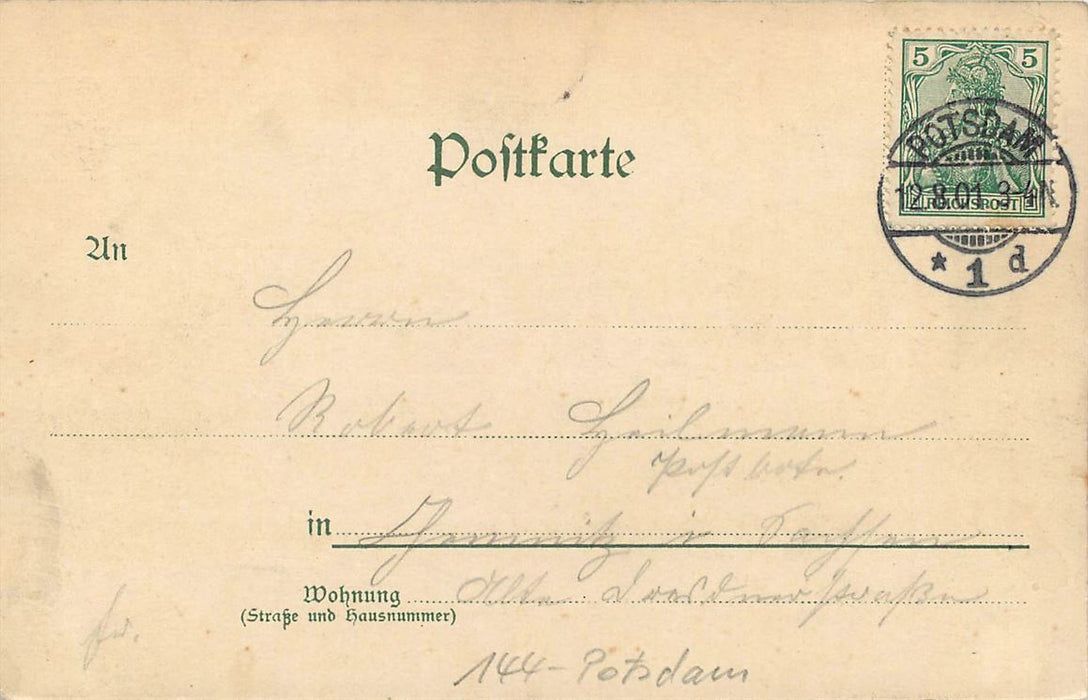 5 5
REICHSPOST
POTSDAM
12.8.01. 3-4N
* 1 d
Postkarte
An
Herrn
Robert Heilmann
Postbote.
in Chemnitz i Sachsen
Wohnung Alte Dresdnerstraße
(Straße und Hausnummer)
144 - Potsdam